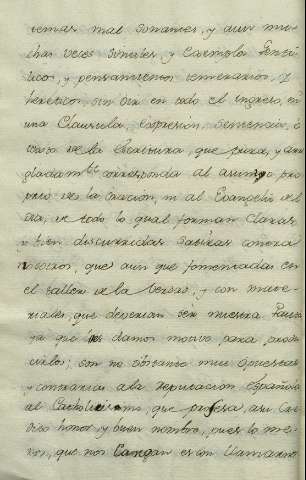 temas mal sonantes, y aun mu-
chas veces Simíles, y Exemplos Genti-
licos, y pensamientos temerarios, y
hereticos, sin oir en todo el ingreso, ni
una Clausula, Expresión, Sentencia, ó
de la Escritura, que fixa, y arre-
gladamte corresponda al asunto pro-
prio de la Oración, ni al Evangelio del
dia, de todo lo qual forman claras,
y bien discurridas Satiras contra
nosotros, que aun que fomentadas en
el taller de la verdad, y con mate-
riales, que deverian ser nuestra Pauta
ya que les damos motivo para produ-
cirlas; son no obstante muy opuestas,
y contrarias a la reputacion Española
al Catholicismo, que profesa, a su
honor, y buen nombre, pues lo me-
nos, que nos cargan es con llamarnos